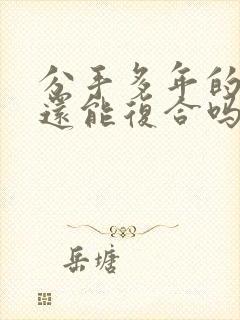 分手多年的
還能復合吗
岳塘